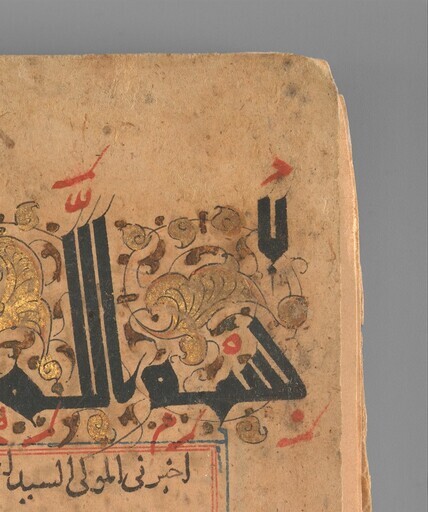 بسم الله
اخبرني المولى السيد